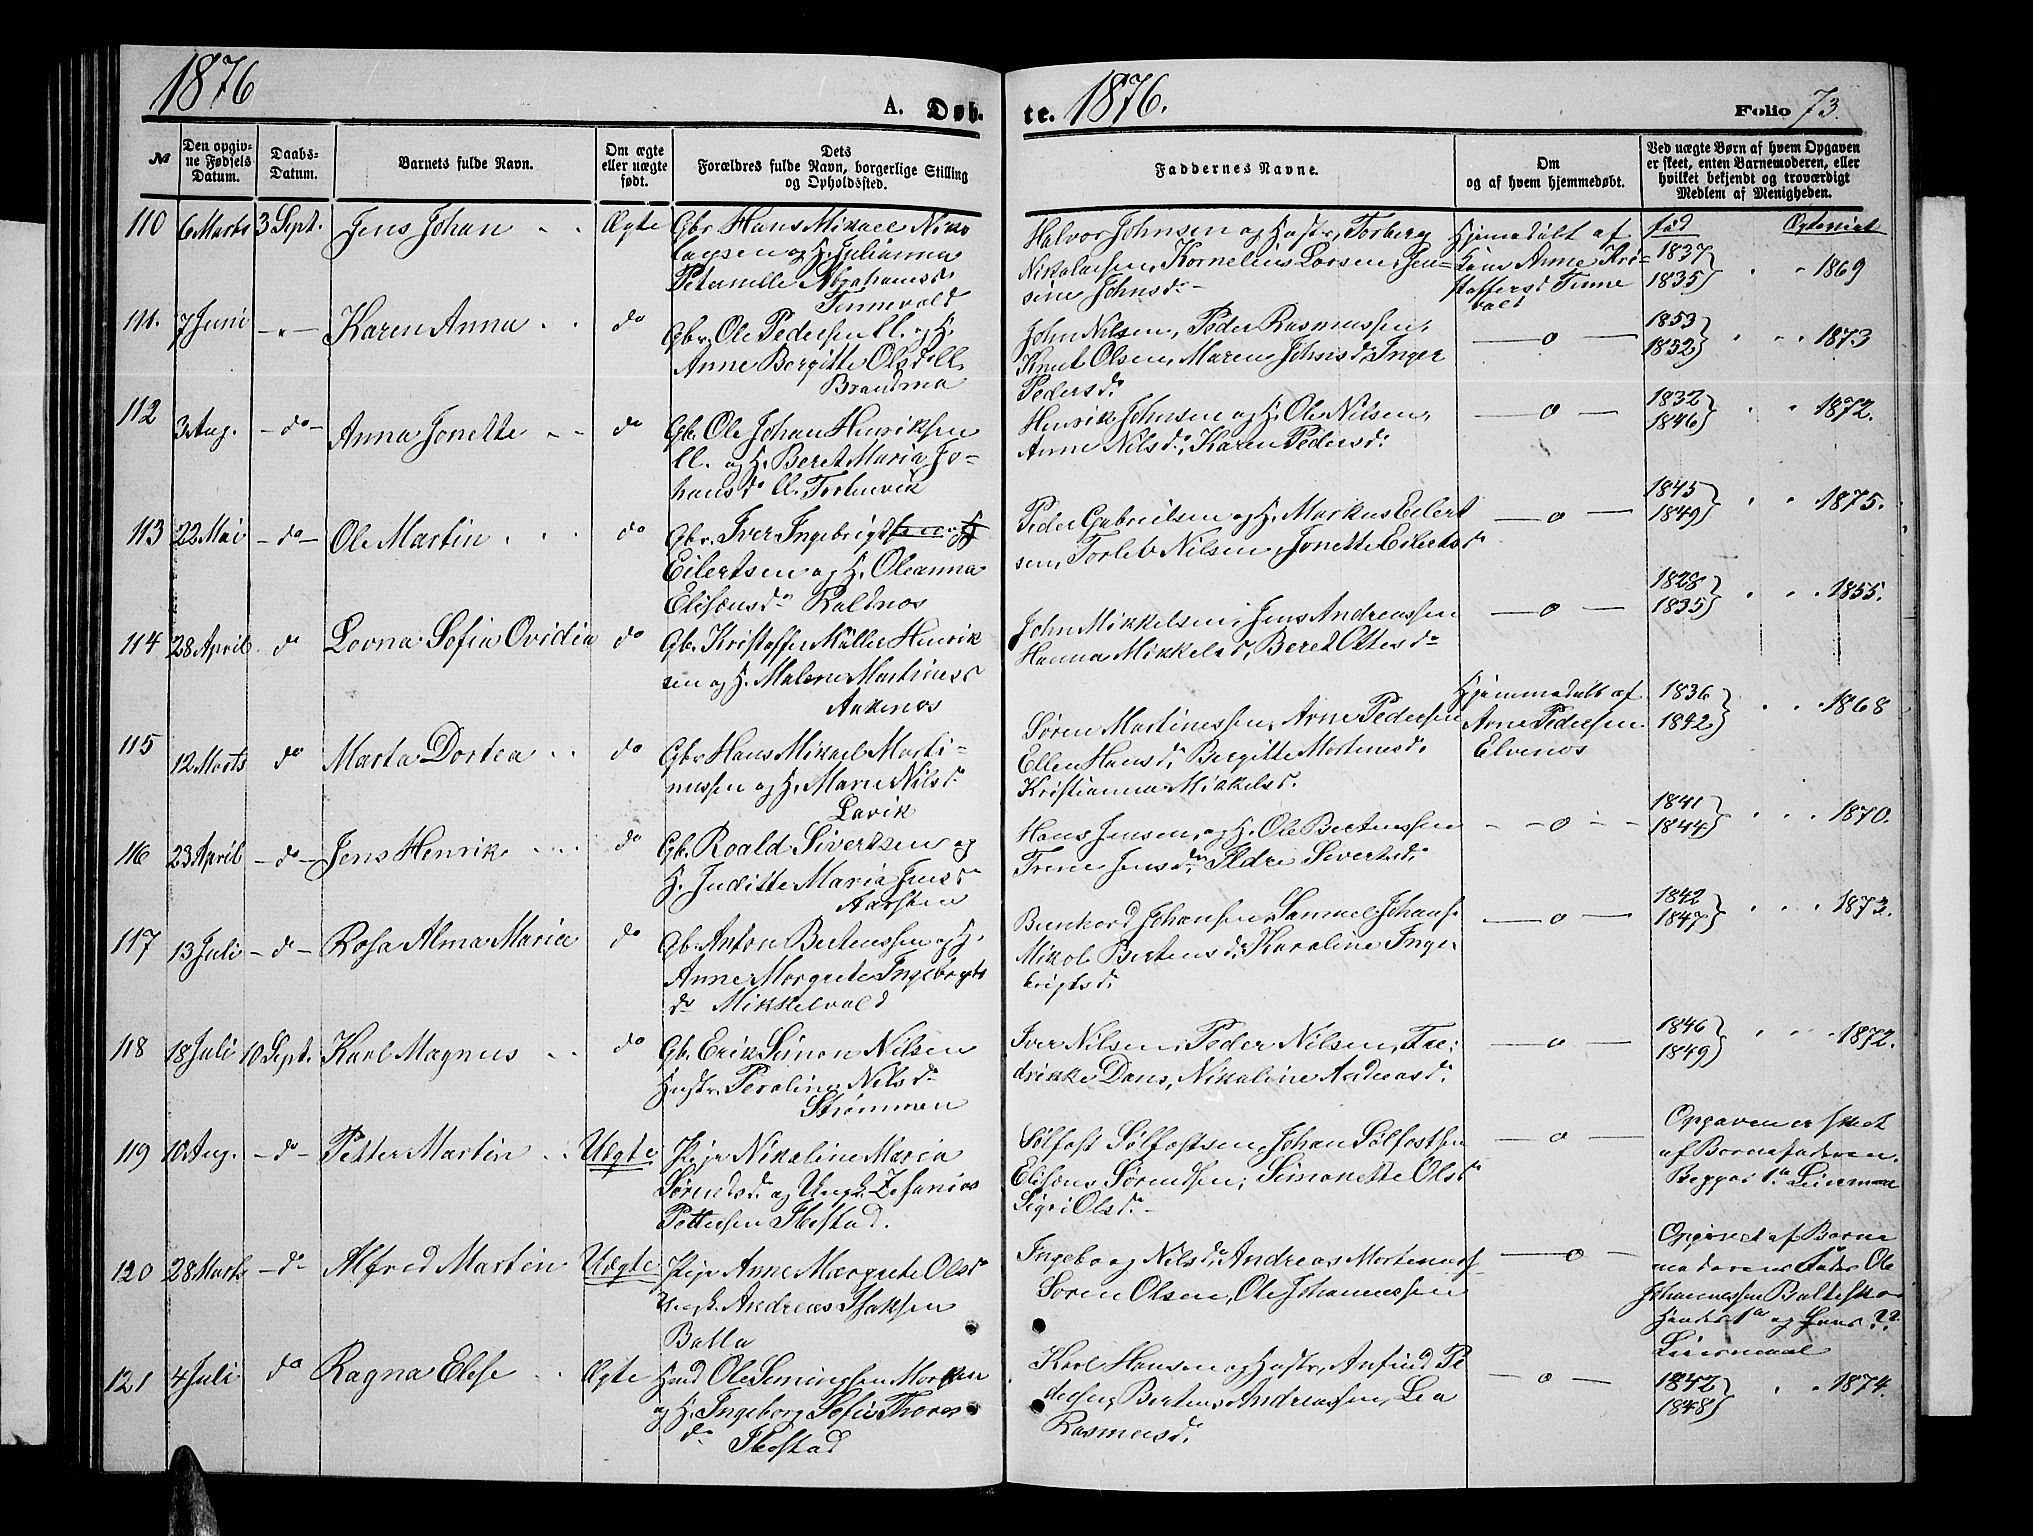 1876
A. Døb-
te. 1876.
Folio 73.
№
Den opgivne Fødsels Datum.
Daabs-Datum.
Barnets fulde Navn.
Om ægte eller uægte født.
Dets Forældres fulde Navn, borgerlige Stilling og Opholdssted.
Faddernes Navne.
Om og af hvem hjemmedøbt.
Ved uægte Børn af hvem Opgaven er skeet, enten Barnemoderen, eller hvilket bekjendt og troværdigt Medlem af Menigheden.
110 6 Marts 3 Sept. Jens Johan Ægte Gbr. Hans Mikael Niko
laysen og H. Julianna
Peternille Abrahamsd.
Tennevold
Halvor Johnsen og Hustr., Torberg
Nikolaisen, Kornelius Larsen, Jen-
sine Johnsd.
Hjemmedøbt af
Anne Kri-
stoffersd. Tenne
vold
fød
1837
1835 1869
111. 7 Juni Karen Anna do Gbr. Ole Pedersen ll. og H.
Anne Bergitte Olsd. ll.
Brandmo
John Nilsen, Peder Rasmussen,
Knut Olsen, Maren Johnsd., Inger
Pedersd.
o
1853
1852 1873
112 3 Aug. do Anna Jonette do Gbr. Ole Johan Henriksen
ll. og H. Beret Maria Jo-
hansd.
Henrik Johnsen og H. Ole Nilsen,
Anne Nilsd., Karen Pedersd.
o
1832
1846 1872.
113 22 Mai do Ole Martin do Gbr. Iver Ingebrigtsen og H
Eilertsen og H. Oleanna
Elisæusd.
Peder Gabrielsen og H. Markus Eilert
sen, Torleb Nilsen, Jonette Eilertsd.
o
1845
1849 1875.
114 28 April do Lovna Sofia Ovidia do Gb. Kristoffer Müller Henrik
sen og H. Malene Martinesd.
Aakenes
John Mikkelsen, Jens Andreassen
Hanna Mikkelsd., Beret Ottesd.
o
1828
1835 1855.
115 12 Marts do Marta Dortea do Gbr. Hans Mikael Marti-
nussen og H. Maren Nilsd.
Lavik
Søren Martinessen, Arne Pedersen
Ellen Hansd., Bergitte Mortensd.
Kristianna Mikkelsd.
Hjemmedøbt af
Arne Pedersen
Elvenes
1836
1842 1868
116 23 April do Jens Henrik do Gb. Roald Sivertsen og
H. Juditte Maria Jensd.
Aarsten
Hans Jensen og H. Ole Bertenssen
Trine Jensd., Peldre Sivertsd.
o
1841
1844 1870.
117 13 Juli do Rosa Alma Maria do Gb. Anton Bertenssen og H.
Anne Margrete Ingebrigts
d. Mikkelvold
Johansen, Samuel Johans.
Mikol Bertensd., Karoline Inge
brigtsd.
o
1842
1847 1873.
118 18 Juli 10 Sept. Karl Magnus do Gb. Erik Simon Nilsen
Hustr. Peroline Nilsd.
Strømmen
Iver Nilsen, Peder Nilsen, Fre-
drikke Dans, Nikoline Andreasd.
o
1846
1849 1872.
119 10 Aug. do Petter Martin Uægte Pige Nikoline Maria
Sørensd. og Ungk. Zefanias
Pettersen Ibestad.
Sølfast Sølfastsen, Johan Sølfastsen
Elisæus Sørensen, Simonette Olsd.
Sigri Olsd.
o
Opgaven er skeet
af Barnefaderen.
Begges 1a Leiermaal
120 28 Marts do Alfred Martin Uægte Pige Anne Margrete Olsd.
Ungk. Andreas Isaksen
Balla
Ingeborg Nilsd., Andreas Mortens
Søren Olsen, Ole Johannessen
o
Opgivet af Barne
moderens Fader Ole
Johannessen Balteskar
Hendes 1a og hans ??
Leiermaal
121 4 Juli do Ragna Elese Ægte Hmd Ole Simingsen Morken
og H. Ingeborg Sofie Thores
d. Ibestad
Karl Hansen og Hustr., Anfind Pe
dersen, Bertens Andreassen, Lea
Rasmusd.
o
1842
1848 1874.